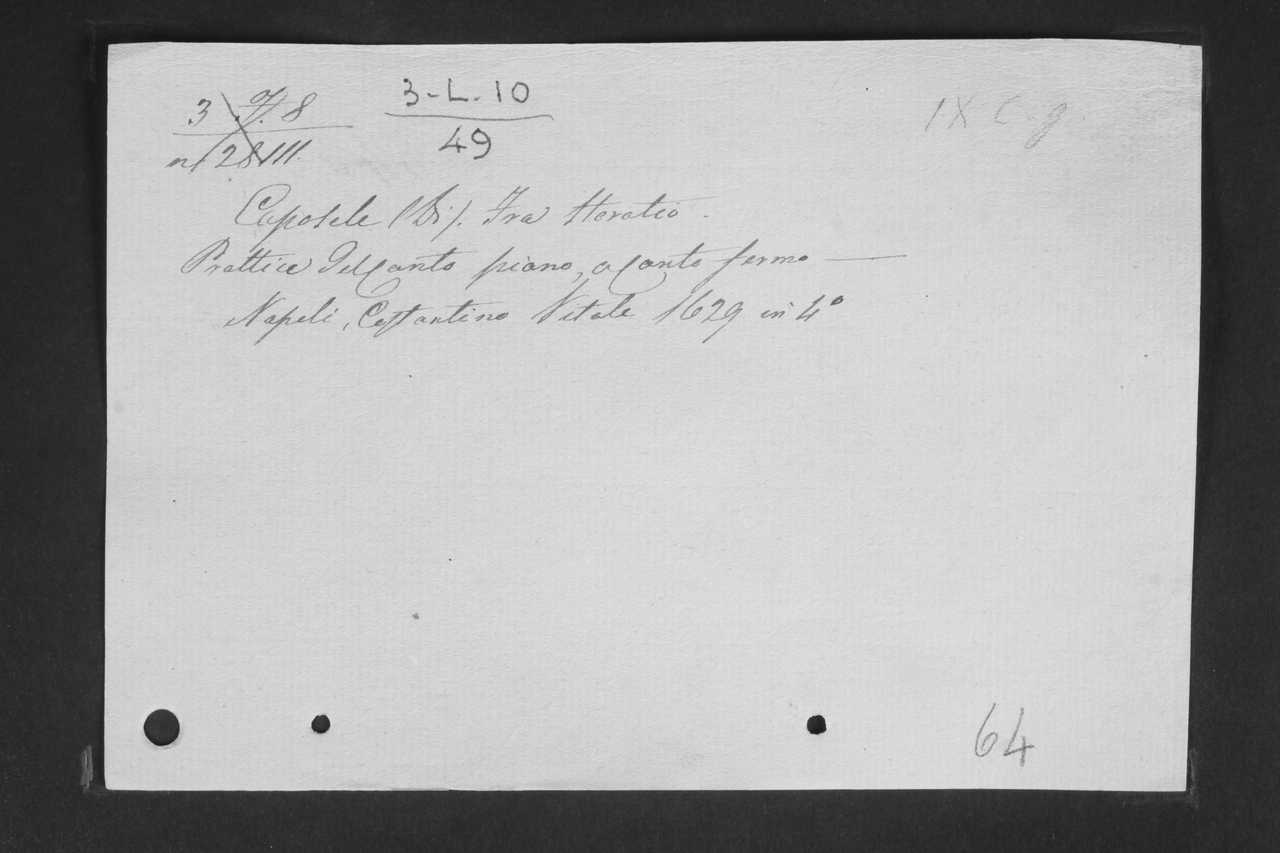 3 . 7. 8
3-L.10
IX C. g.
n/ 28 III.
49
Caposele (Di). Fra Horatio.
Prattica del Canto piano, o Canto fermo —
Napoli, Costantino Vitale 1629 in 4°
64